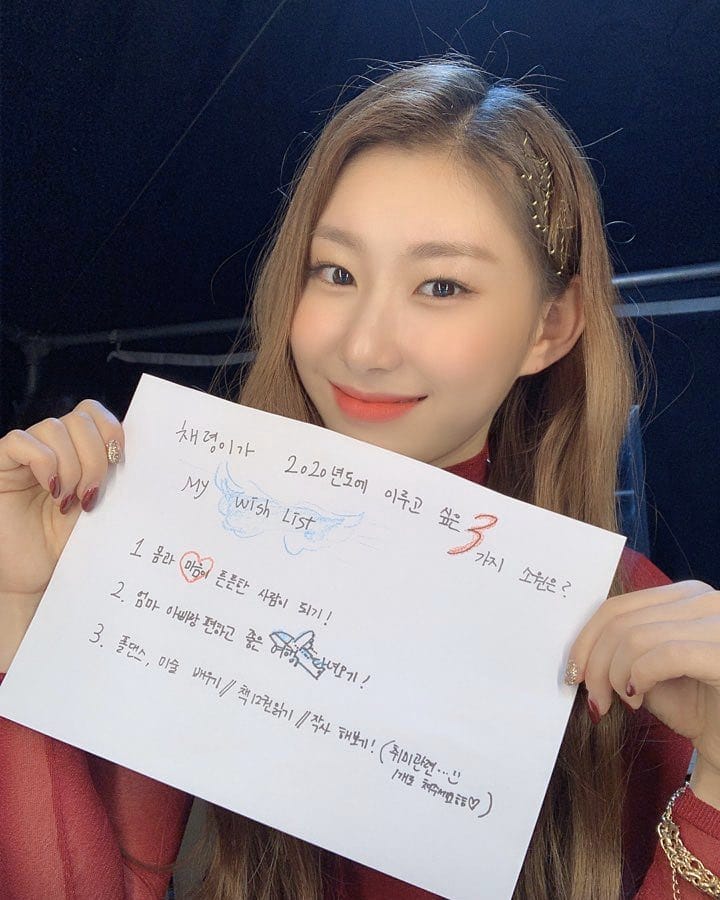 채령이가 2020년도에 이루고 싶은 3가지 소원은?
My Wish List
1. 몸과 마음이 튼튼한 사람이 되기!
2. 엄마 아빠랑 편하고 좋은 여행 다녀오기!
3. 폴댄스, 미술 배우기// 책12권읽기 // 작사 해보기! (취미관련...!!
1개로 쳐주세요ㅎㅎ♡)